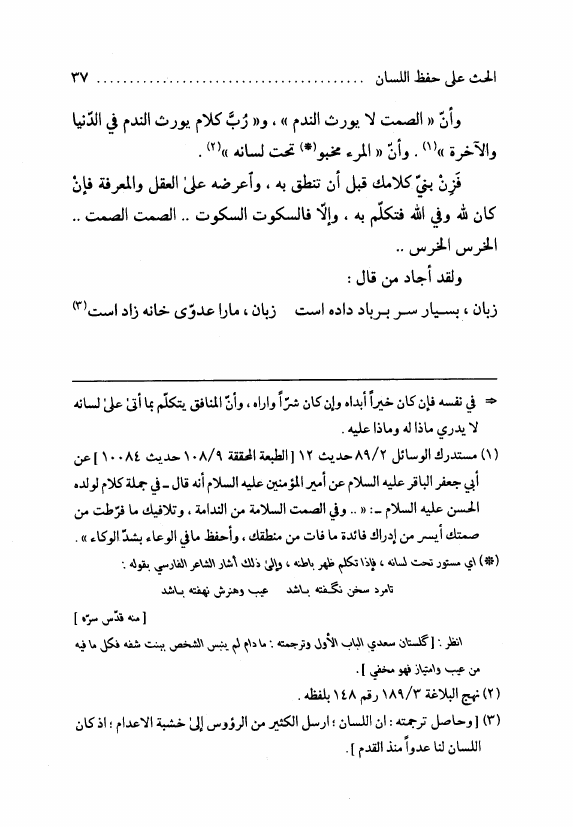 الحث على حفظ اللسان ........................................ ٣٧
وأنّ « الصمت لا يورث الندم » ، و« رُبَّ كلام يورث الندم في الدّنيا
والآخرة »(١) . وأنّ « المرء مخبو(*) تحت لسانه »(٢) .
فَزِنْ بنيّ كلامك قبل أن تنطق به ، وٱعرضه علىٰ العقل والمعرفة فإنْ
كان لله وفي الله فتكلّم به ، وإلّا فالسكوت السكوت .. الصمت الصمت ..
الخرس الخرس ..
ولقد أجاد من قال :
زبان ، بسـيار سـر بـرباد داده است    زبان ، مارا عدوّى خانه زاد است(٣)
⇐ في نفسه فإن كان خيراً أبداه وإن كان شرّاً واراه ، وأنّ المنافق يتكلّم بما أتىٰ علىٰ لسانه
لا يدري ماذا له وماذا عليه .
(١) مستدرك الوسائل ٨٩/٢ حديث ١٢ [ الطبعة المحققة ١٠٨/٩ حديث ١٠٠٨٤ ] عن
أبي جعفر الباقر عليه السلام عن أمير المؤمنين عليه السلام أنه قال ـ في جملة كلام لولده
الحسن عليه السلام ـ: « .. وفي الصمت السلامة من الندامة ، وتلافيك ما فرّطت من
صمتك أيسر من إدراك فائدة ما فات من منطقك ، وأحفظ مافي الوعاء بشدّ الوكاء » .
(*) اي مستور تحت لسانه ، فإذا تكلم ظهر باطنه ، وإلىٰ ذلك أشار الشاعر الفارسي بقوله :
تامرد سخن نگـفته بـاشد    عيب وهنرش نهفته بـاشد
[ منه قدّس سرّه ]
انظر : [ گلستان سعدي الباب الأول وترجمته : ما دام لم ينبس الشخص ببنت شفه فكل ما فيه
من عيب وامتياز فهو مخفي ] .
(٢) نهج البلاغة ١٨٩/٣ رقم ١٤٨ بلفظه .
(٣) [ وحاصل ترجمته : ان اللسان ؛ ارسل الكثير من الرؤوس إلىٰ خشبة الاعدام ؛ اذ كان
اللسان لنا عدواً منذ القدم ] .